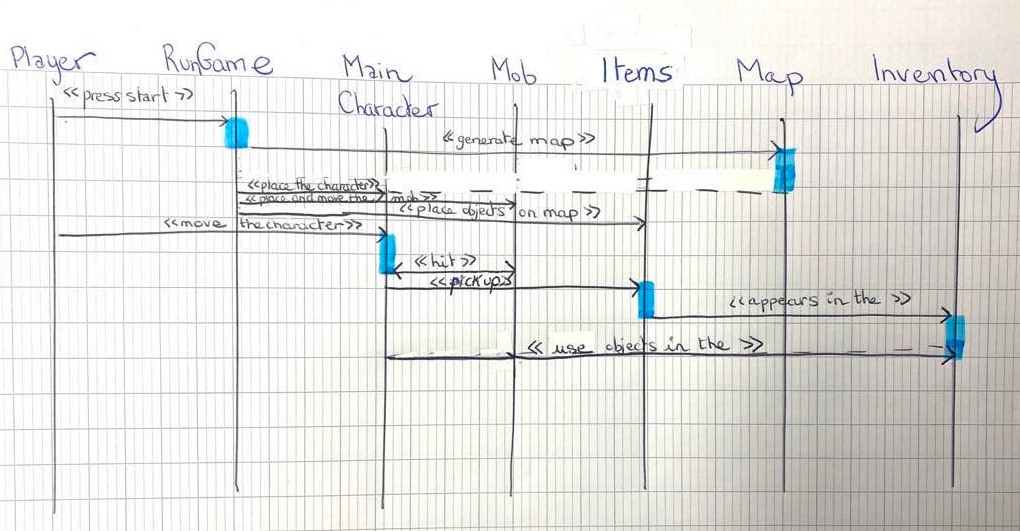 Player RunGame Main Mob Items Map Inventory
Character
<<press start>>
<<generate map>>
<<place the character>>
<<place and move the mob>>
<<place objects on map>>
<<move the character>>
<<hit>>
<<pick up>>
<<appears in the >>
<< use objects in the >>